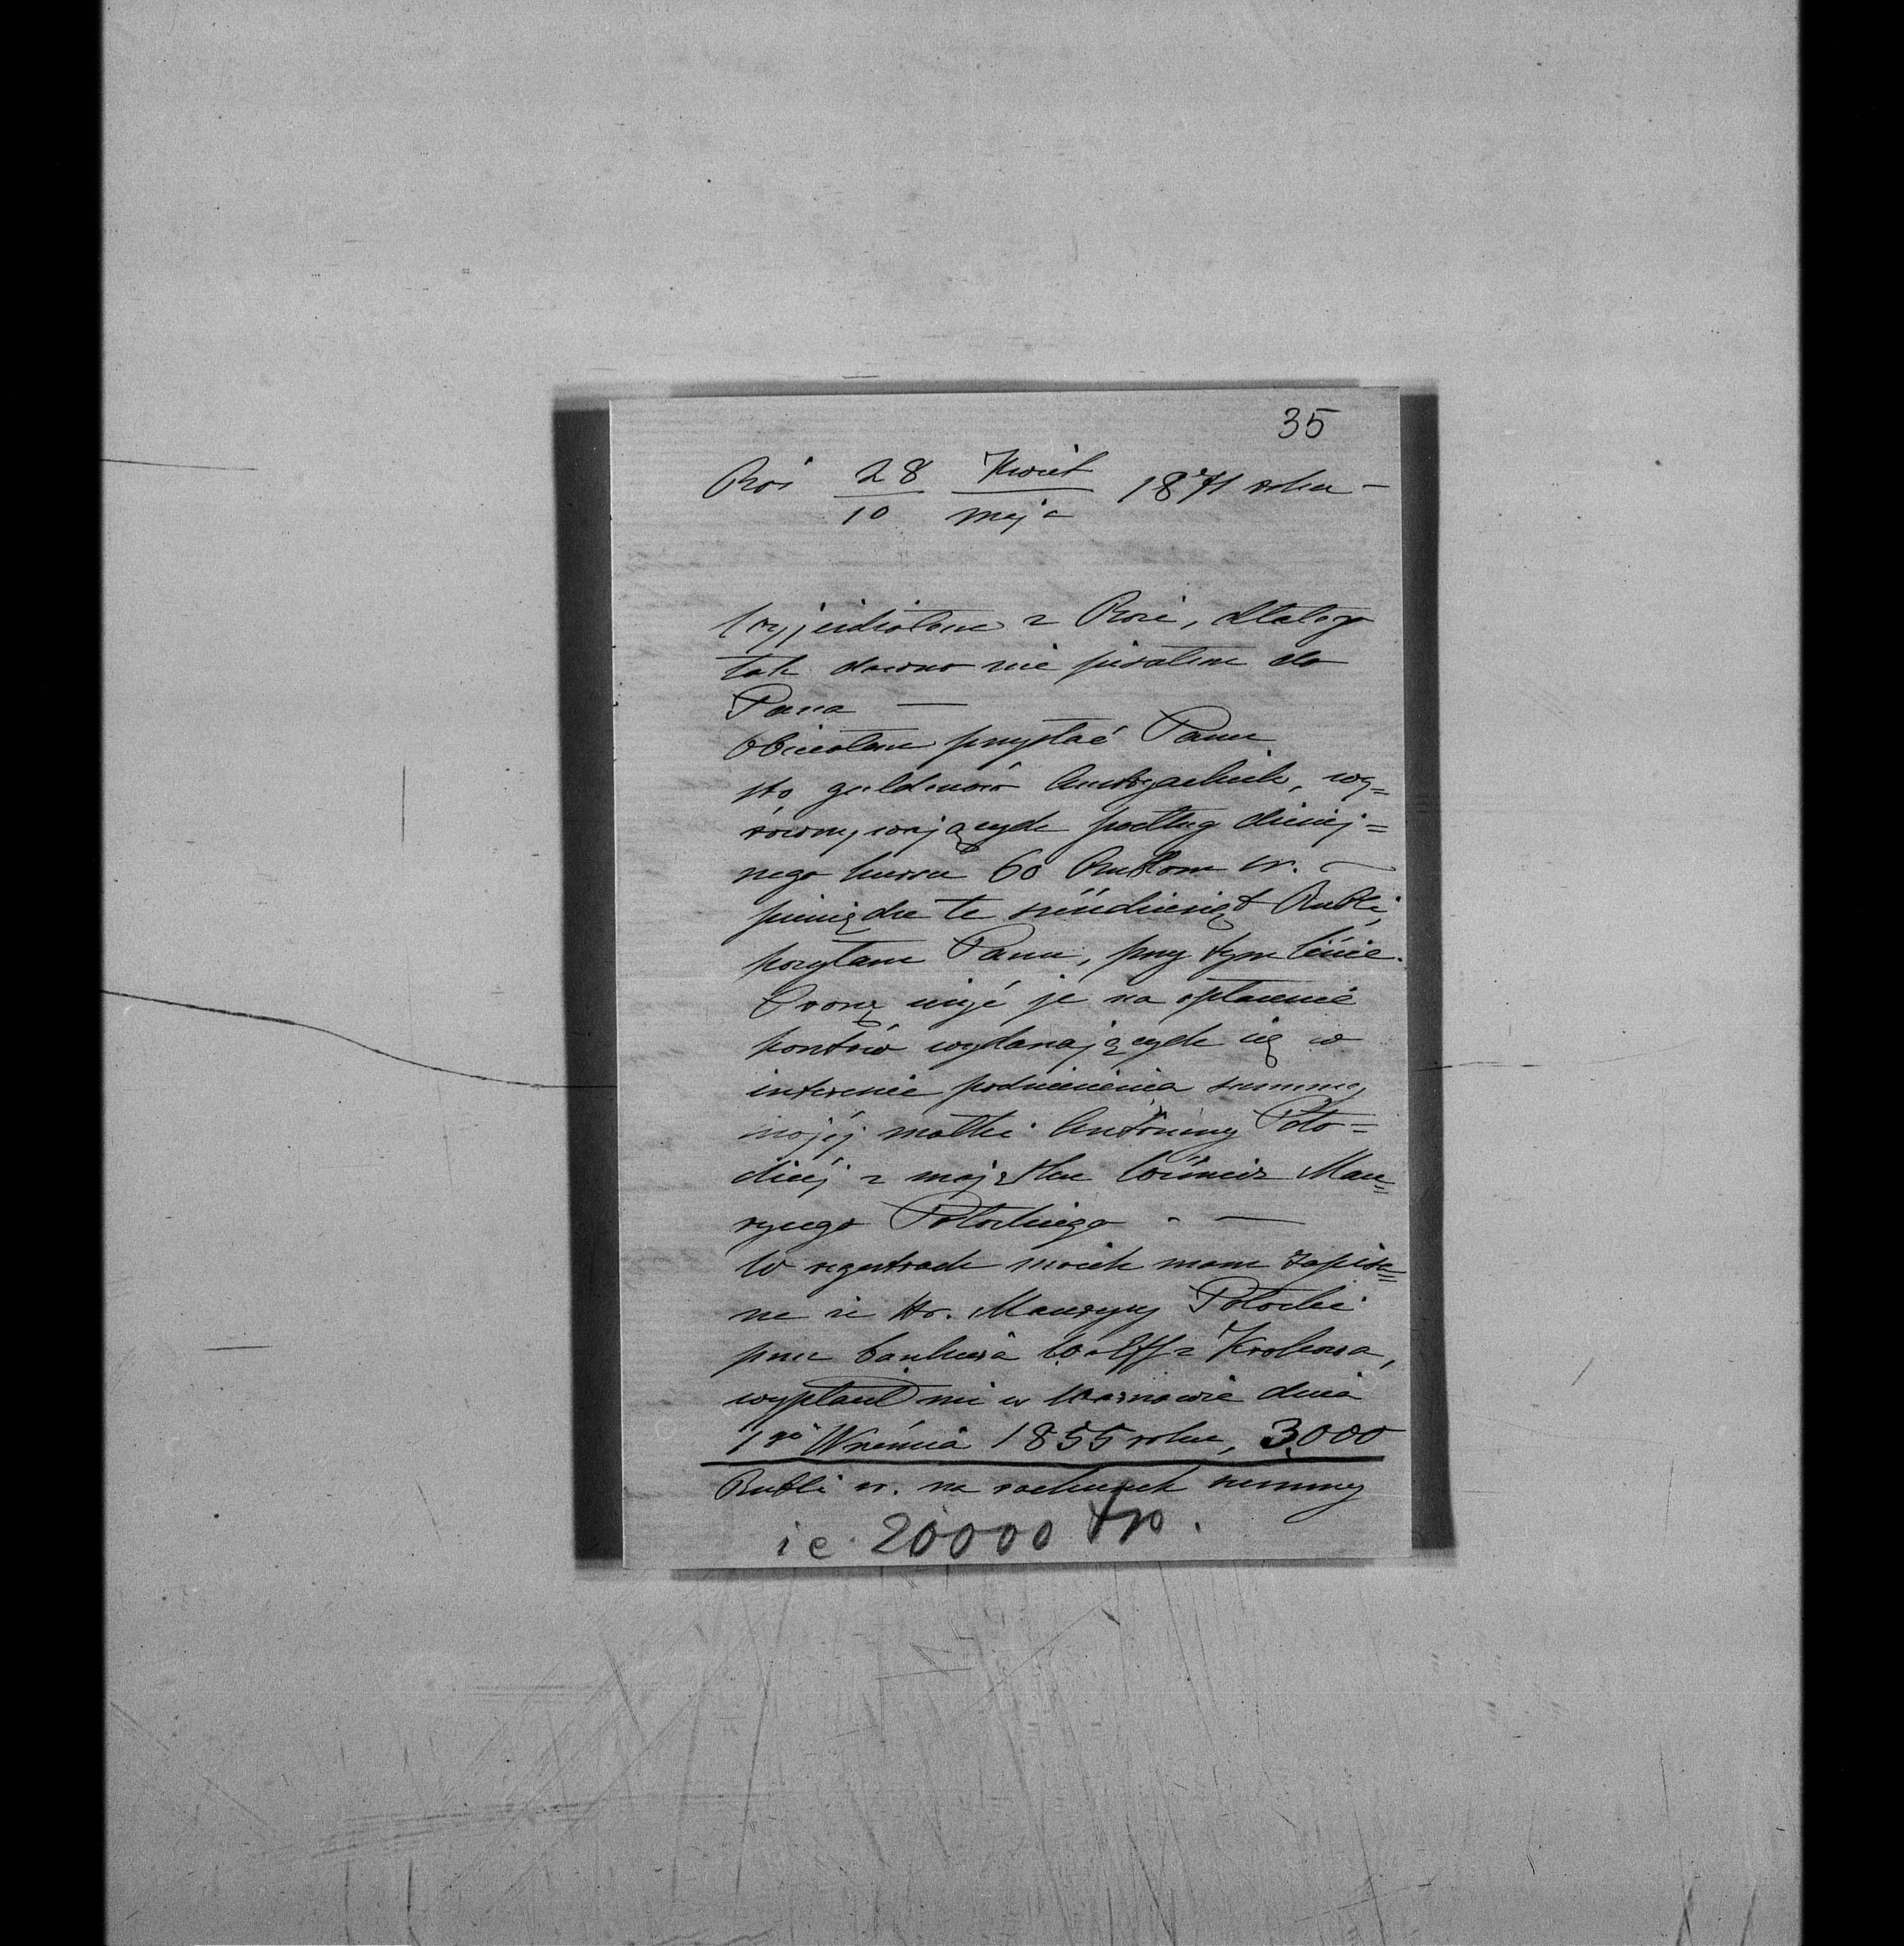 35
Roś 28/10 Kwiet/maja 1871 roku –
Wyjeżdżałem z Rosi, dlatego
tak dawno nie pisałem do
Pana —
Obiecałem przysłać Panu
sto guldenów Austryackich, wy=
równywających podług dzisiej=
nego kursu 60 Rublom sr. —
pieniądze te sześćdziesiąt Rubli,
posyłam Panu, przy tym liście.
Proszę użyć je na opłacenie
kosztów wydarzających się w
interesie podniesienia summy
mojéj matki Antoniny Poto=
ckiéj z majątku Mau=
rycego Potockiego . —
W regestrach moich mam zapisa=
ne że Hr. Maurycy Potocki
przez bankiera Wolff z Krakowa,
wypłacił mi w Warszawie dnia
1go Września 1855 roku, 3000
Rubli sr. na rachunek summy
ie. 20000